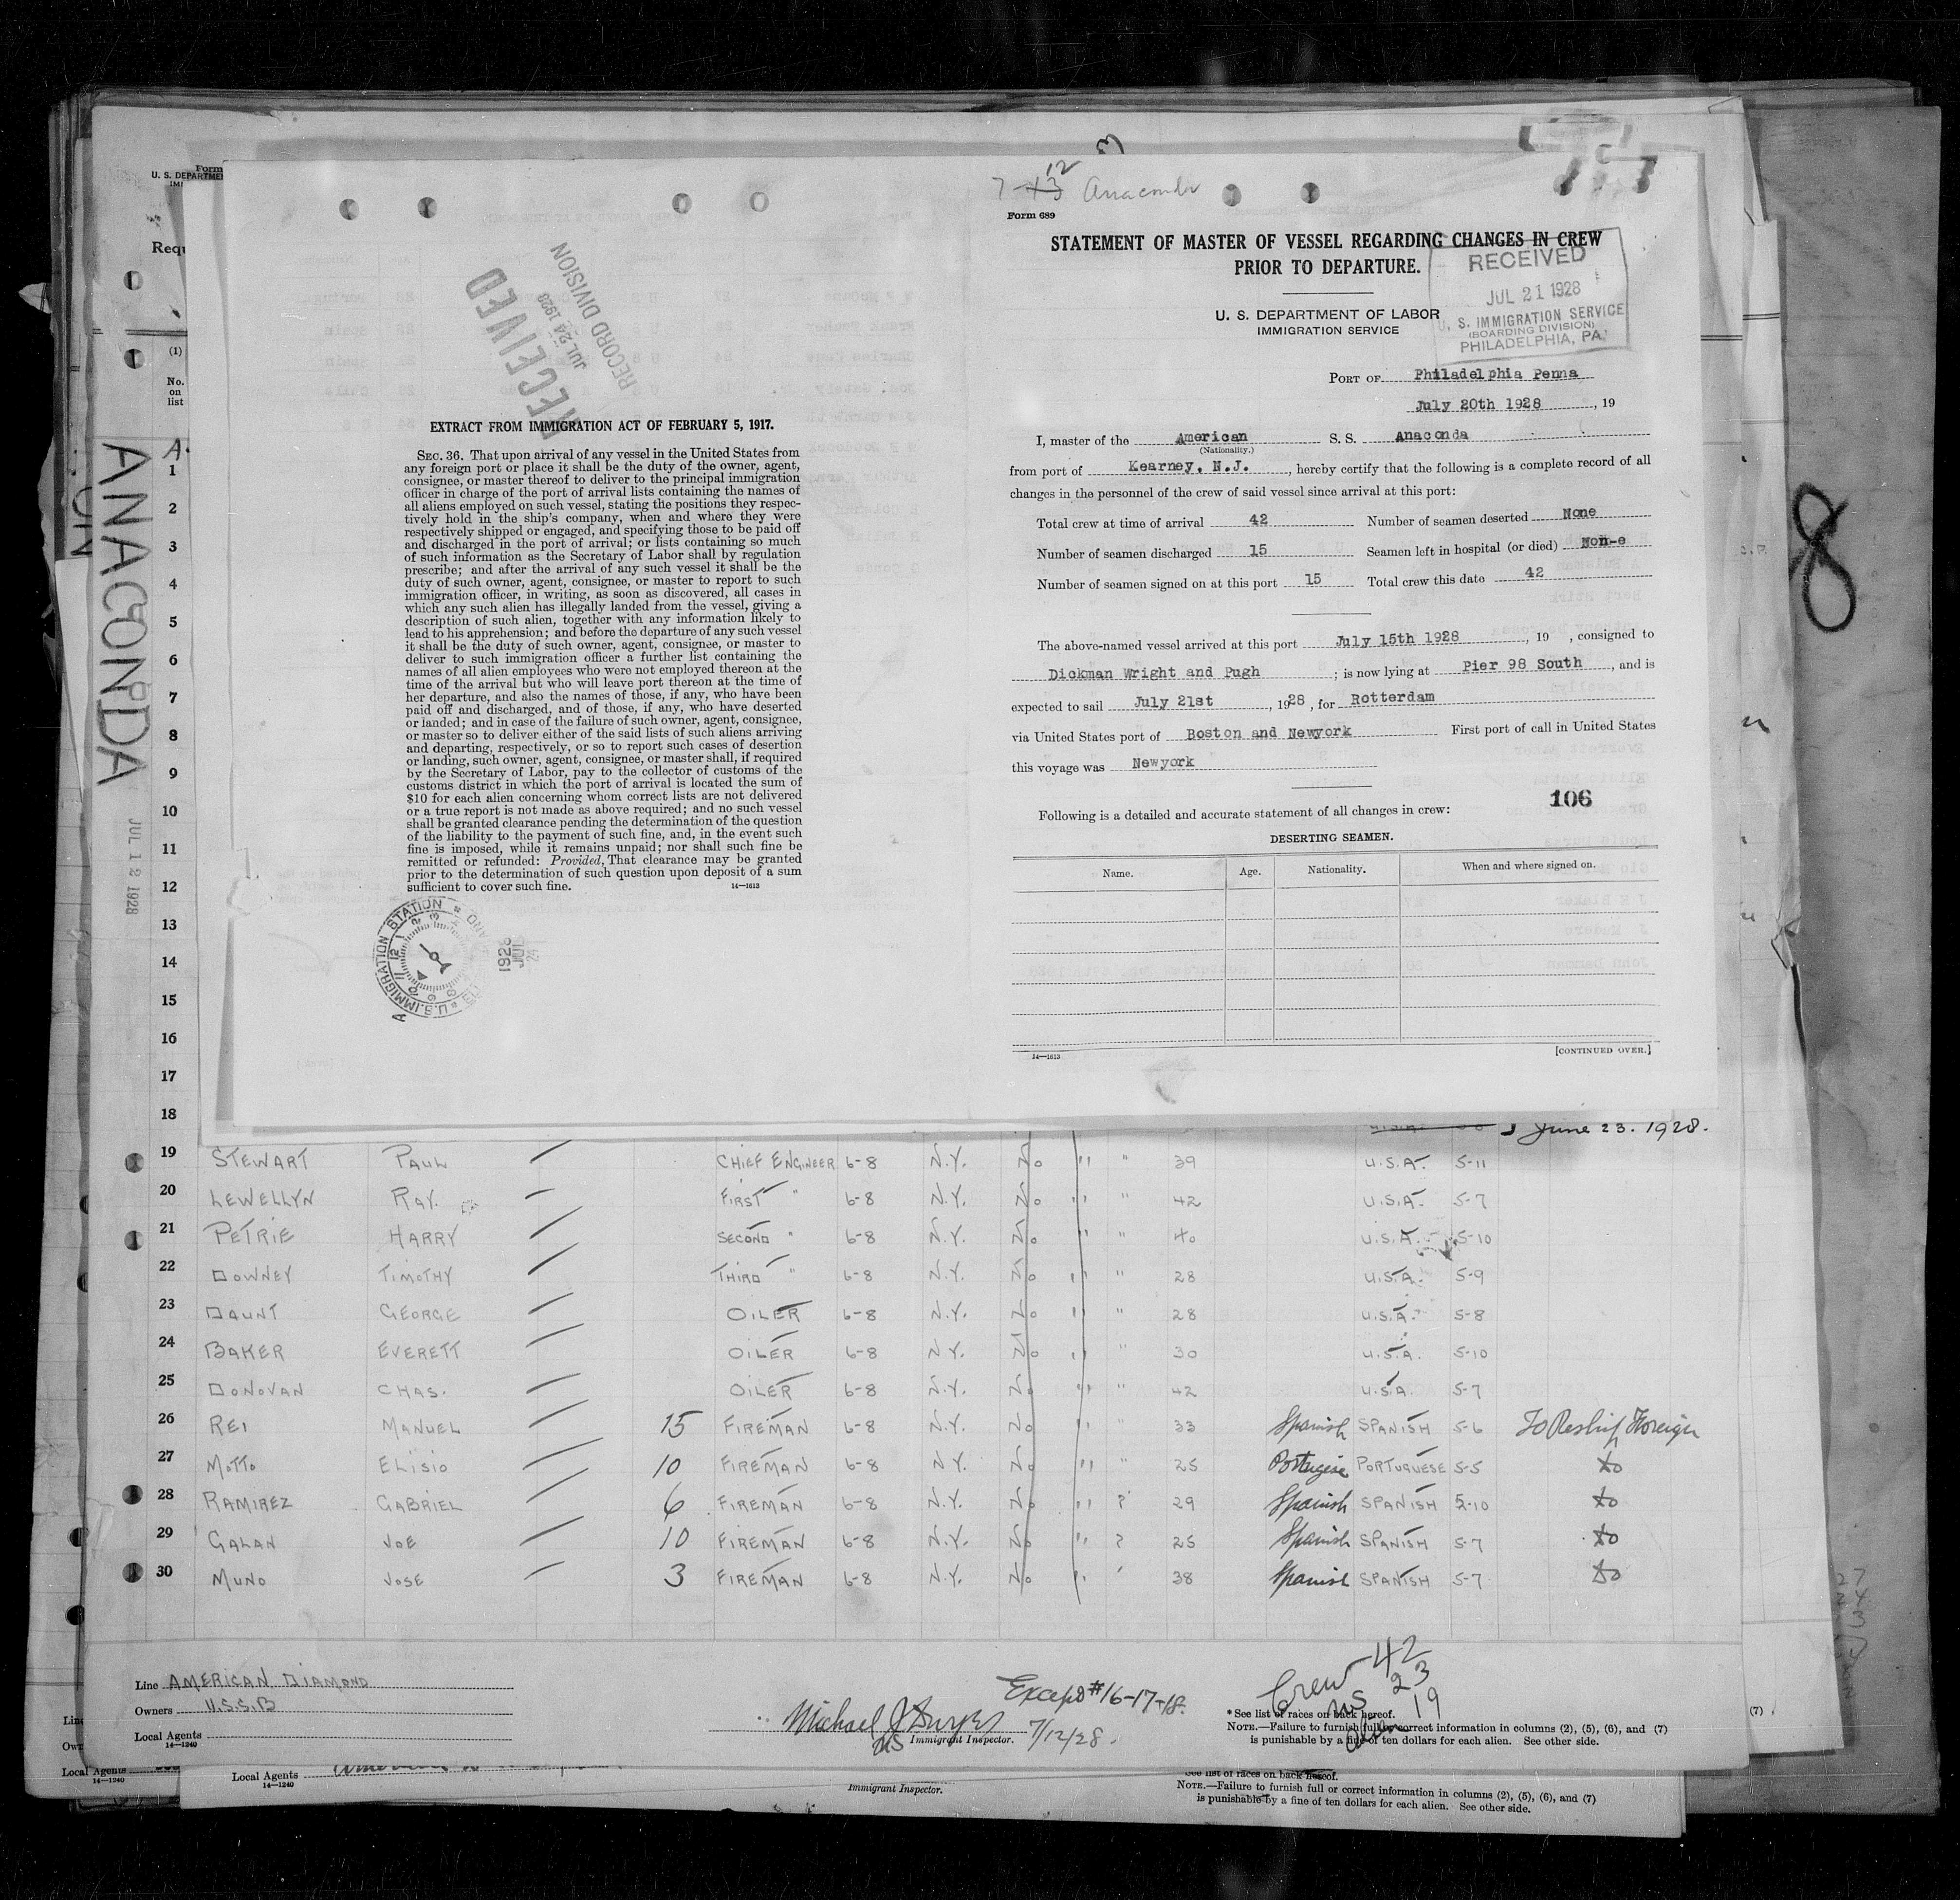 7-13 12 Anaconda
Form 689
STATEMENT OF MASTER OF VESSEL REGARDING CHANGES IN CREW
PRIOR TO DEPARTURE.
U. S. DEPARTMENT OF LABOR
IMMIGRATION SERVICE
RECEIVED
JUL 21 1928
U. S. IMMIGRATION SERVICE
(BOARDING DIVISION)
PHILADELPHIA, PA.
PORT OF Philadelphia Penna
July 20th 1928, 19
I, master of the American S. S. Anaconda
(Nationality.)
from port of Kearney, N.J., hereby certify that the following is a complete record of all
changes in the personnel of the crew of said vessel since arrival at this port:
Total crew at time of arrival 42 Number of seamen deserted None
Number of seamen discharged 15 Seamen left in hospital (or died) Non-e
Number of seamen signed on at this port 15 Total crew this date 42
The above-named vessel arrived at this port July 15th 1928, 19 , consigned to
Dickman Wright and Pugh ; is now lying at Pier 98 South, and is
expected to sail July 21st, 1928, for Rotterdam
via United States port of Boston and Newyork First port of call in United States
this voyage was Newyork
106
Following is a detailed and accurate statement of all changes in crew:
DESERTING SEAMEN.
Name. Age. Nationality. When and where signed on.
14—1613 [CONTINUED OVER.]
RECEIVED
JUL 24 1928
RECORD DIVISION
EXTRACT FROM IMMIGRATION ACT OF FEBRUARY 5, 1917.
SEC. 36. That upon arrival of any vessel in the United States from
any foreign port or place it shall be the duty of the owner, agent,
consignee, or master thereof to deliver to the principal immigration
officer in charge of the port of arrival lists containing the names of
all aliens employed on such vessel, stating the positions they respec-
tively hold in the ship's company, when and where they were
respectively shipped or engaged, and specifying those to be paid off
and discharged in the port of arrival; or lists containing so much
of such information as the Secretary of Labor shall by regulation
prescribe; and after the arrival of any such vessel it shall be the
duty of such owner, agent, consignee, or master to report to such
immigration officer, in writing, as soon as discovered, all cases in
which any such alien has illegally landed from the vessel, giving a
description of such alien, together with any information likely to
lead to his apprehension; and before the departure of any such vessel
it shall be the duty of such owner, agent, consignee, or master to
deliver to such immigration officer a further list containing the
names of all alien employees who were not employed thereon at the
time of the arrival but who will leave port thereon at the time of
her departure, and also the names of those, if any, who have been
paid off and discharged, and of those, if any, who have deserted
or landed; and in case of the failure of such owner, agent, consignee,
or master so to deliver either of the said lists of such aliens arriving
and departing, respectively, or so to report such cases of desertion
or landing, such owner, agent, consignee, or master shall, if required
by the Secretary of Labor, pay to the collector of customs of the
customs district in which the port of arrival is located the sum of
$10 for each alien concerning whom correct lists are not delivered
or a true report is not made as above required; and no such vessel
shall be granted clearance pending the determination of the question
of the liability to the payment of such fine, and, in the event such
fine is imposed, while it remains unpaid; nor shall such fine be
remitted or refunded: Provided, That clearance may be granted
prior to the determination of such question upon deposit of a sum
sufficient to cover such fine. 14—1613
U.S. IMMIGRATION STATION
1928
JUL
Form
U. S. DEPARTME
IMI
Requ
(1)
No.
on
list
ANACONDA
JUL 12 1928
8
A.
1
2
3
4
5
6
7
8
9
10
11
12
13
14
15
16
17
18
June 23. 1928.
19 STEWART PAUL CHIEF ENGINEER 6-8 N.Y. No " " 39 U.S.A. 5-11
20 LEWELLYN RAY. FIRST " 6-8 N.Y. No " " 42 U.S.A. 5-7
21 PETRIE HARRY SECOND " 6-8 N.Y. No " " 40 U.S.A. 5-10
22 DOWNEY TIMOTHY THIRD " 6-8 N.Y. No " " 28 U.S.A. 5-9
23 DAUNT GEORGE OILER 6-8 N.Y. No " " 28 U.S.A. 5-8
24 BAKER EVERETT OILER 6-8 N.Y. No " " 30 U.S.A. 5-10
25 DONOVAN CHAS. OILER 6-8 N.Y. No " " 42 U.S.A. 5-7
26 REI MANUEL 15 FIREMAN 6-8 N.Y. No " " 33 Spanish SPANISH 5-6 To Reship Foreign
27 MOTTO ELISIO 10 FIREMAN 6-8 N.Y. No " " 25 Portugese PORTUGUESE 5-5 do
28 RAMIREZ GABRIEL 6 FIREMAN 6-8 N.Y. No " " 29 Spanish SPANISH 5-10 do
29 GALAN JOE 10 FIREMAN 6-8 N.Y. No " " 25 Spanish SPANISH 5-7 do
30 MUNO JOSE 3 FIREMAN 6-8 N.Y. No " " 38 Spanish SPANISH 5-7 do
Line AMERICAN DIAMOND
Owners U.S.S.B
Local Agents
14—1240
Except #16-17-18.
Michael J 7/12/28.
Immigrant Inspector.
Crew 42
US 23
alien 19
* See list of races on back hereof.
NOTE.—Failure to furnish full or correct information in columns (2), (5), (6), and (7)
is punishable by a fine of ten dollars for each alien. See other side.
(7)
Local Agents
14—1240
Local Agents
14—1240
Immigrant Inspector.
See list of races on back hereof.
NOTE.—Failure to furnish full or correct information in columns (2), (5), (6), and (7)
is punishable by a fine of ten dollars for each alien. See other side.